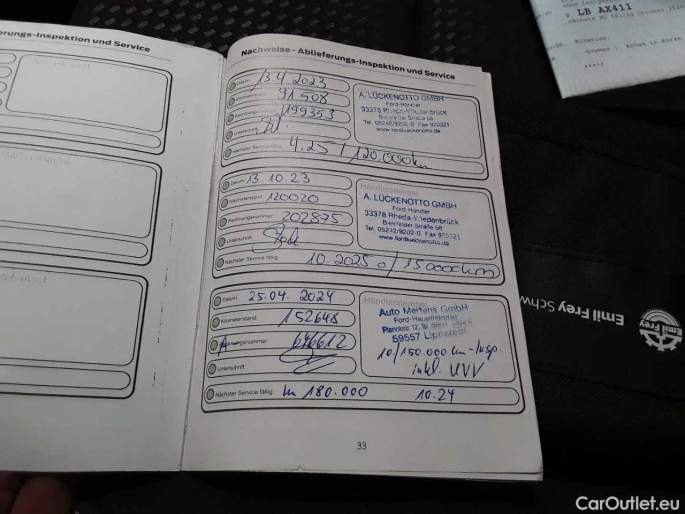 erungs-Inspektion und Service
Nachweise - Ablieferungs-Inspektion und Service
Datum: 13.4.2023
91508
199353
Nächster Service fällig: 4.25 / 120.000km
A. LÜCKENOTTO GMBH
Ford-Händler
33378 Rheda-Wiedenbrück
Bielefelder Straße 68
Tel. 05242/9202-0 Fax 920221
www.fordlueckenotto.de
Datum: 13.10.23
Kilometerstand: 120020
Rechnungsnummer: 202875
Unterschrift:
Nächster Service fällig: 10.2025 o/ 150000km
Händlerstempel
A. LÜCKENOTTO GMBH
Ford-Händler
33378 Rheda-Wiedenbrück
Bielefelder Straße 68
Tel. 05242/9202-0 Fax 920221
www.fordlueckenotto.de
Datum: 25.04.2024
Kilometerstand: 152648
676612
Unterschrift:
Nächster Service fällig: km 180.000 10.24
Händlerstempel
Auto Mertens GmbH
Ford-Haupthändler
59557 Lippstadt
10/150.000 km - Insp.
inkl. VVV
33
LB AX411
Emil Frey Schw
Emil Frey
CarOutlet.eu